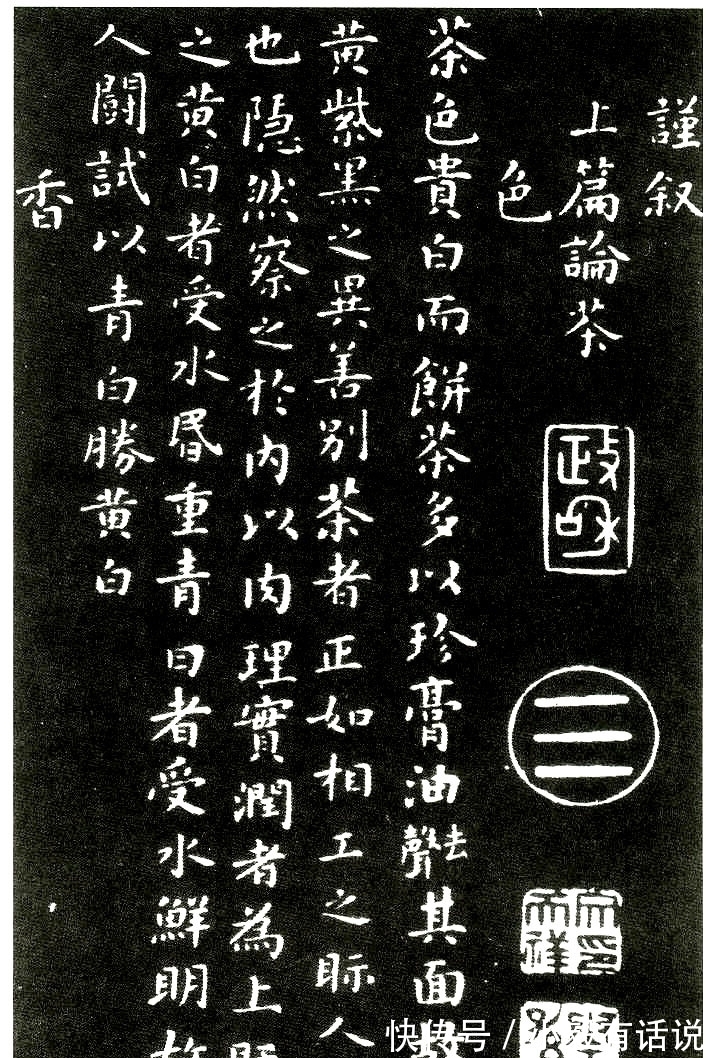 謹叙
上篇論茶
色
茶色貴白而餅茶多以珍膏油去聲其面
黄紫黑之異善别茶者正如相工之眎人
也隱然察之於内以肉理實潤者為上
之黄白者受水昬重青白者受水鮮明故
人鬬試以青白勝黄白
香
政和
快传号 / 有话说